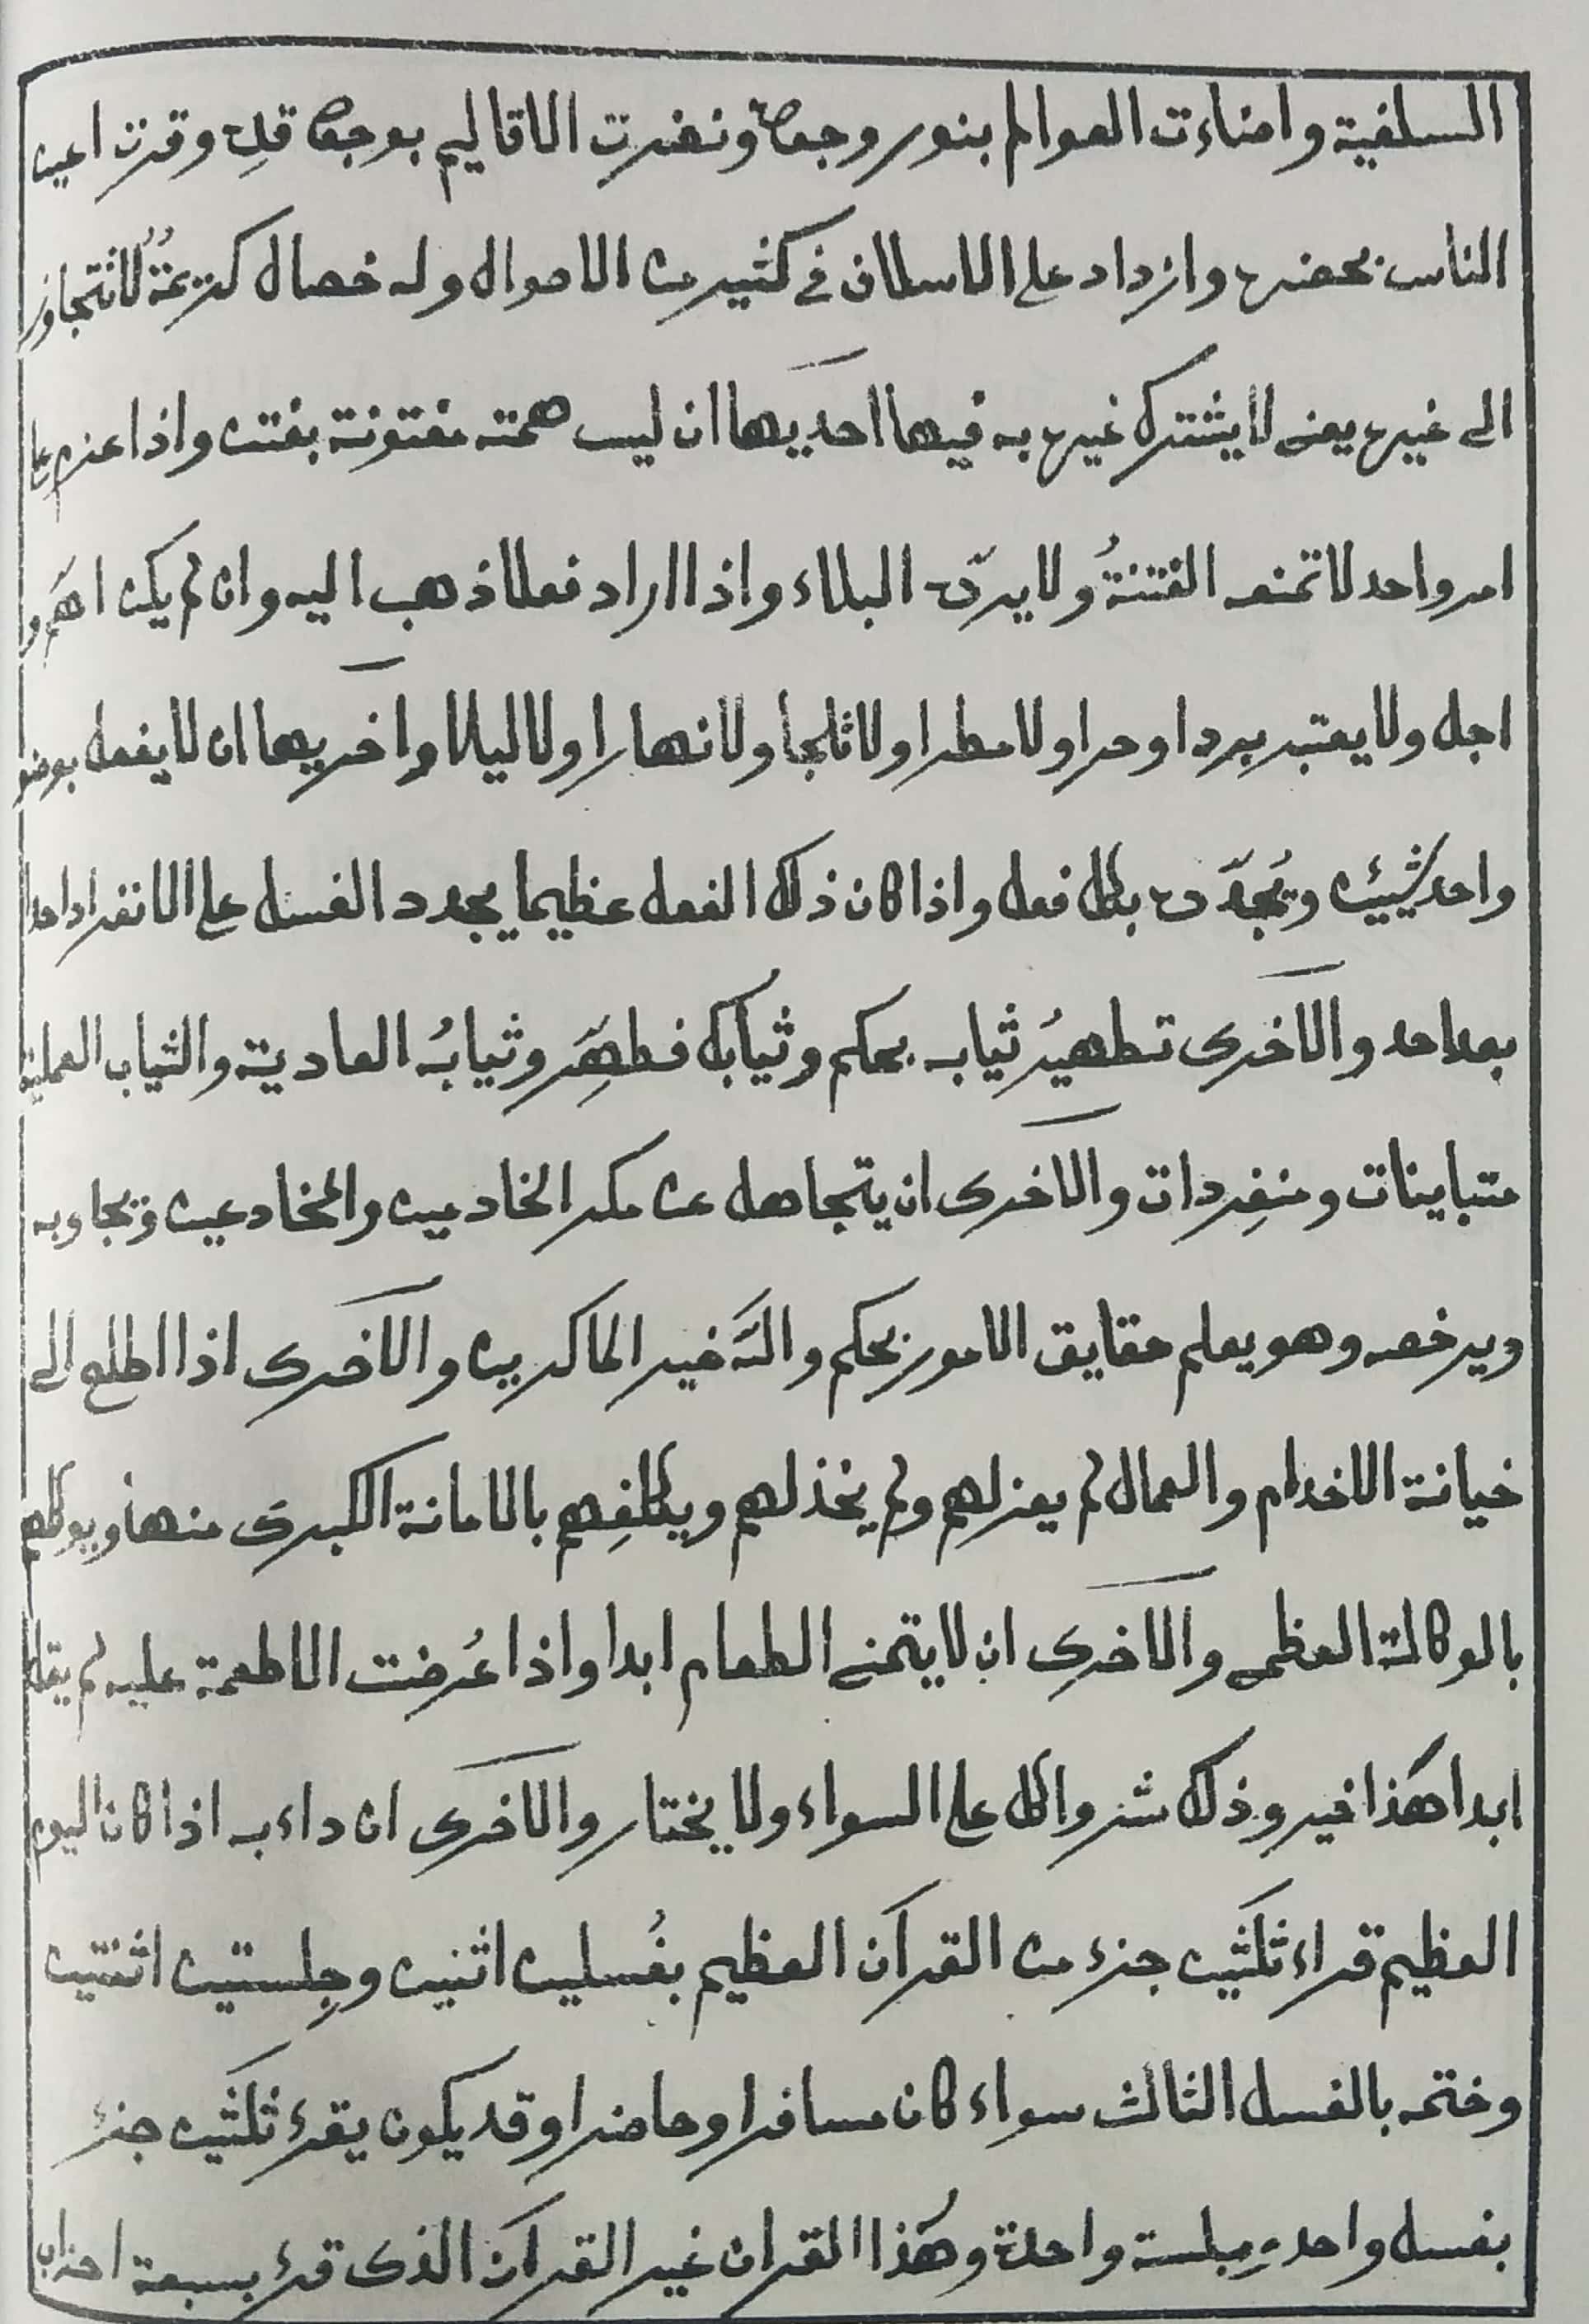 السلفية واضاءت العوالم بنور وجهه ونضرت الاقاليم بوجهه قلِ وقرت اعين
الناس بحضره وازداد على الاسلاف في كثير من الاحوال وله خصال كريمةٌ لا تتجاوز
الى غيره يعنى لا يشترك غيره به فيها احديها ان ليس همته مفتونة بفتن واذا عزم على
امر واحد لا تمنعه الفتنةُ ولا يردّه البلاء واذا اراد فعلا ذهب اليه وان لم يكن اهم و
اجل ولا يعتبر بردا وحرا ولا مطرا ولا ثلجا ولا نهارا ولا ليلا واخريها ان لا يفعل بوضو
واحد شيئين ويُجدّده بكل فعل واذا كان ذلك الفعل عظيما يجدد الغسل على الانفراد احدا
بعد احد والاخرى تطهيرُ ثيابه بحكم وثيابك فطهِّر وثيابُه العادية والثياب العملية
متباينات ومنفِردات والاخرى ان يتجاهل عن مكر الخادعين والمخادعين ويجاوبه
ويرخصه وهو يعلم حقايق الامور بحكم واللّه خير الماكرين والاخرى اذا اطلع الى
خيانة الاخدام والعمال لم يعزلهم ولم يخذلهم ويكلفِهم بالامانة الكبرى منها ويوكلهم
بالوكالة العظمى والاخرى ان لا يتمنى الطعام ابدا واذا عُرضت الاطعمة عليه لم يقل
ابدا هذا خير وذلك شر والكل على السواء ولا يختار والاخرى ان داءبه اذا كان اليوم
العظيم قراء ثلثين جزء من القرآن العظيم بغُسلين اثنين وجِلستين اثنتين
وختمه بالغسل الثالث سواء كان مسافرا وحاضرا وقد يكون يقرء ثلثين جزء
بغسل واحد وبجلسة واحدة وهٰذا القران غير القرآن الذى قرء بسبعة احزاب